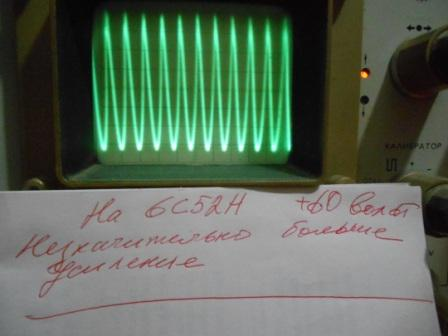 КАЛИБРАТОР
На 6С52Н +60 вольт
Незначительно больше
Усиление